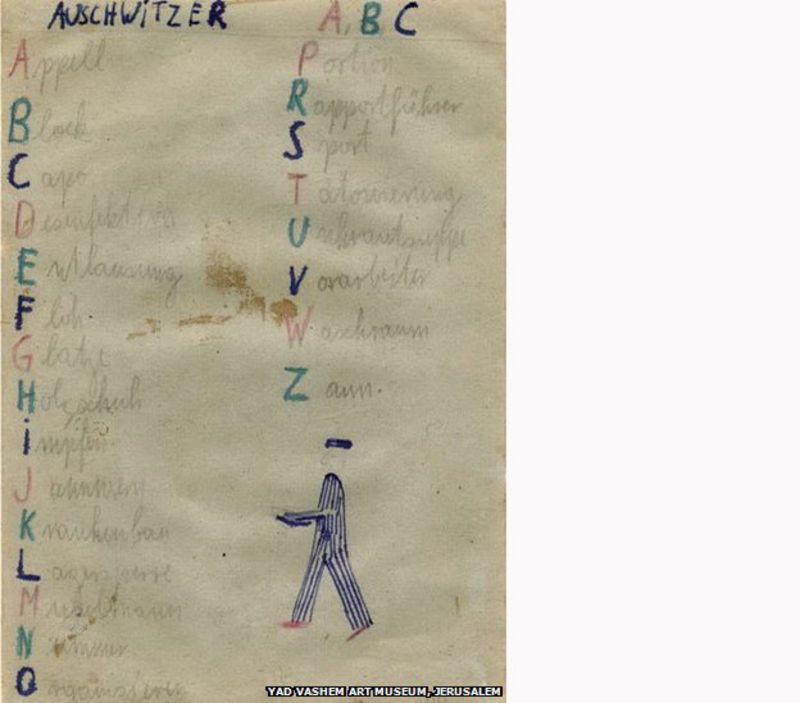 AUSCHWITZER A, B C
Appell
Block
Capo
Desinfektion
Entlausung
Floh
Glatze
Holzschuh
impfen
Krankenbau
Lagersperre
Muselmann
Nummer
Organisieren
Portion
Rapportführer
Sport
Tätowierung
Unkrautsuppe
Vorarbeiter
Waschraum
Zaun.
YAD VASHEM ART MUSEUM, JERUSALEM